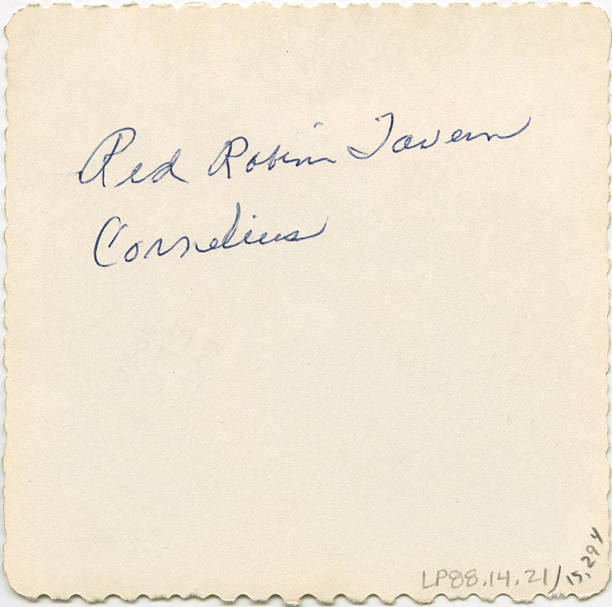 Red Robin Tavern
Cornelius
LP88.14.21/15,294